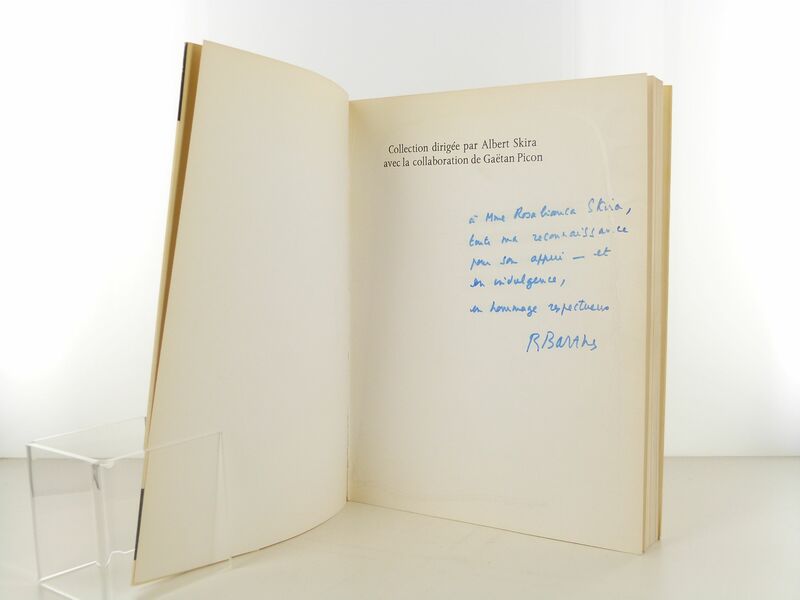 Collection dirigée par Albert Skira
avec la collaboration de Gaëtan Picon
à Mme Rosabianca Skira,
toute ma reconnaissance
pour son appui — et
son indulgence,
en hommage respectueux
R Barthes